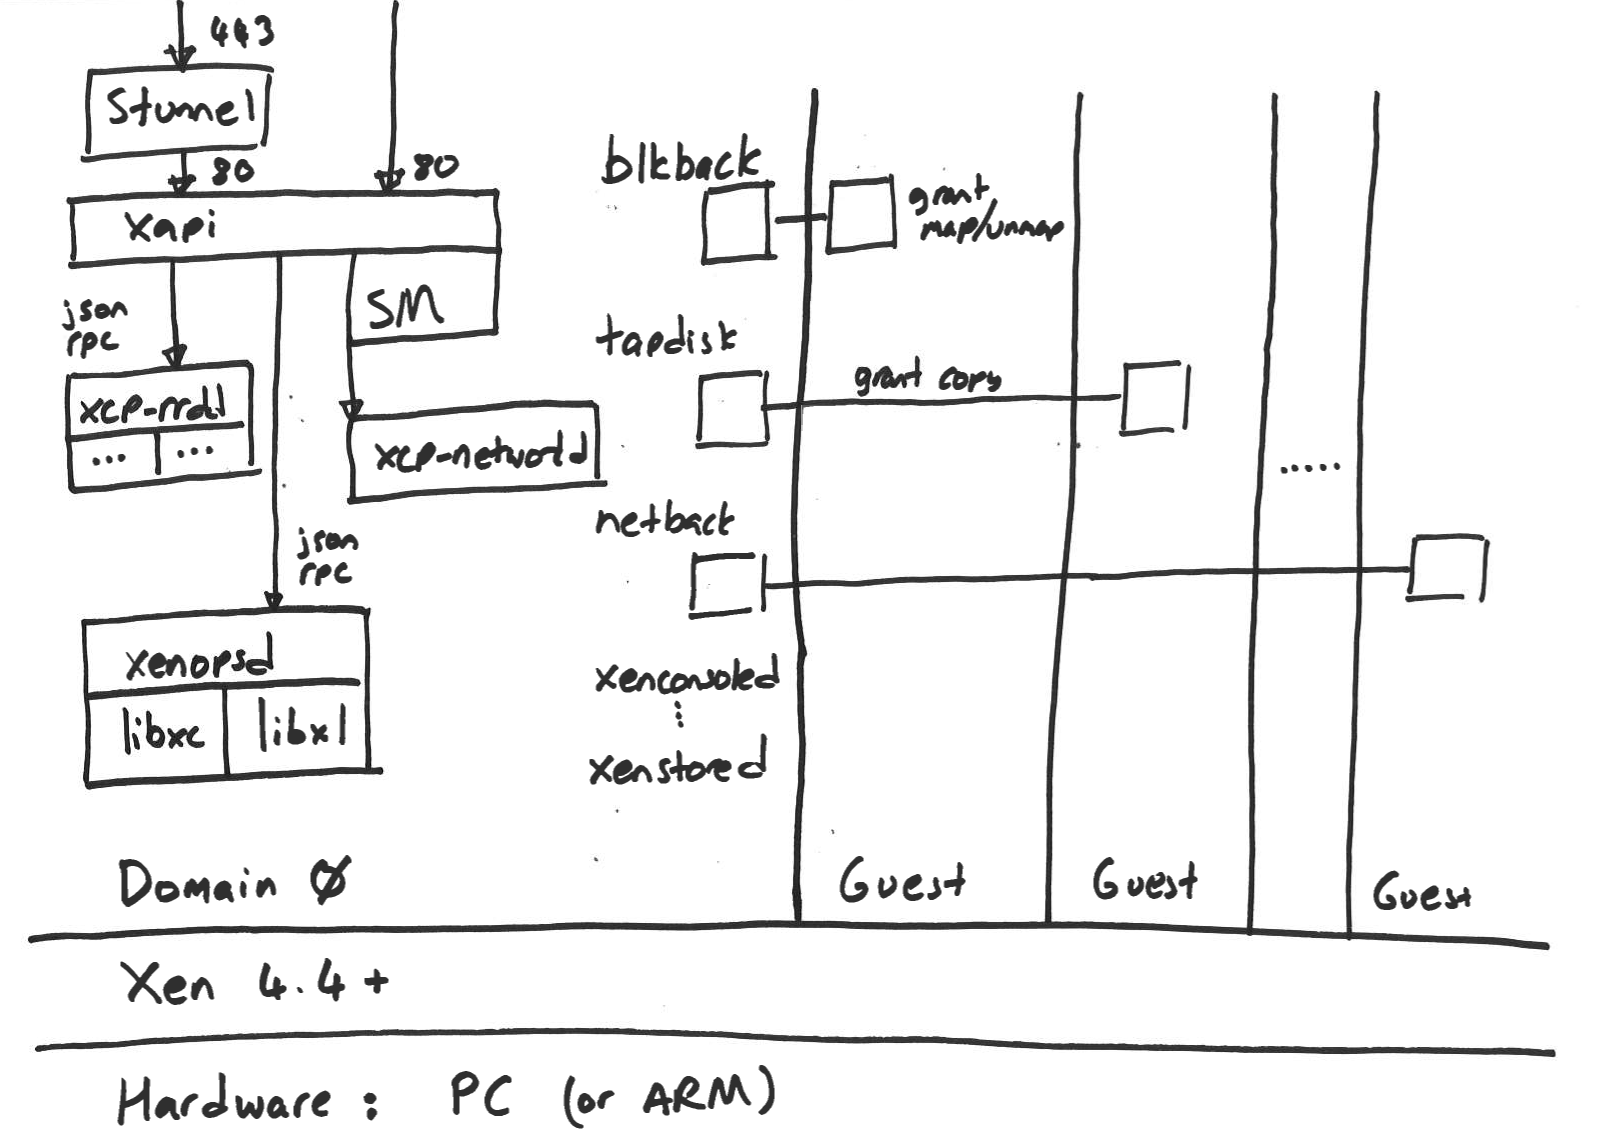 443
Stunnel
80
80
Xapi
SM
json
rpc
xcp-rrdd
...
...
xcp-networkd
json
rpc
xenopsd
libxc
libxl
blkback
grant
map/unmap
tapdisk
grant copy
.....
netback
xenconsoled
xenstored
Domain 0
Guest
Guest
Guest
Xen 4.4+
Hardware: PC (or ARM)